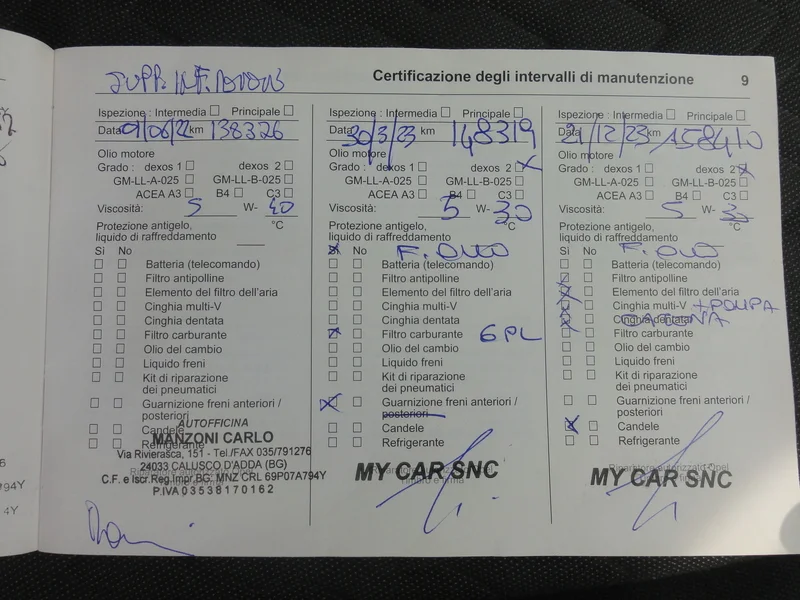 Certificazione degli intervalli di manutenzione 9
SUPP. INF.
Ispezione : Intermedia Principale
Data 01/06/22 km 138326
Olio motore
Grado : dexos 1 dexos 2
GM-LL-A-025 GM-LL-B-025
ACEA A3 B4 C3
Viscosità: 5 W- 40
Protezione antigelo, °C
liquido di raffreddamento
Sì No
Batteria (telecomando)
Filtro antipolline
Elemento del filtro dell'aria
Cinghia multi-V
Cinghia dentata
Filtro carburante
Olio del cambio
Liquido freni
Kit di riparazione
dei pneumatici
Guarnizione freni anteriori /
posteriori
Candele
Refrigerante
AUTOFFICINA
MANZONI CARLO
Via Rivierasca, 151 - Tel./FAX 035/791276
24033 CALUSCO D'ADDA (BG)
C.F. e Iscr.Reg.Impr.BG: MNZ CRL 69P07A794Y
P.IVA 03538170162
Ispezione : Intermedia Principale
Data 30/3/23 km 148319
Olio motore
Grado : dexos 1 dexos 2 x
GM-LL-A-025 GM-LL-B-025
ACEA A3 B4 C3
Viscosità: 5 W- 30
Protezione antigelo, °C
liquido di raffreddamento
Sì No F. OLIO
Batteria (telecomando)
Filtro antipolline
Elemento del filtro dell'aria
Cinghia multi-V
Cinghia dentata
Filtro carburante GPL
Olio del cambio
Liquido freni
Kit di riparazione
dei pneumatici
Guarnizione freni anteriori /
posteriori
Candele
Refrigerante
MY CAR SNC
Ispezione : Intermedia Principale
Data 21/12/23 km 158410
Olio motore
Grado : dexos 1 dexos 2 x
GM-LL-A-025 GM-LL-B-025
ACEA A3 B4 C3
Viscosità: 5 W- 30
Protezione antigelo, °C
liquido di raffreddamento
Sì No F. OLIO
Batteria (telecomando)
Filtro antipolline
Elemento del filtro dell'aria
Cinghia multi-V + POMPA
Cinghia dentata
Filtro carburante
Olio del cambio
Liquido freni
Kit di riparazione
dei pneumatici
Guarnizione freni anteriori /
posteriori
Candele
Refrigerante
Riparatore autorizzato Opel
MY CAR SNC